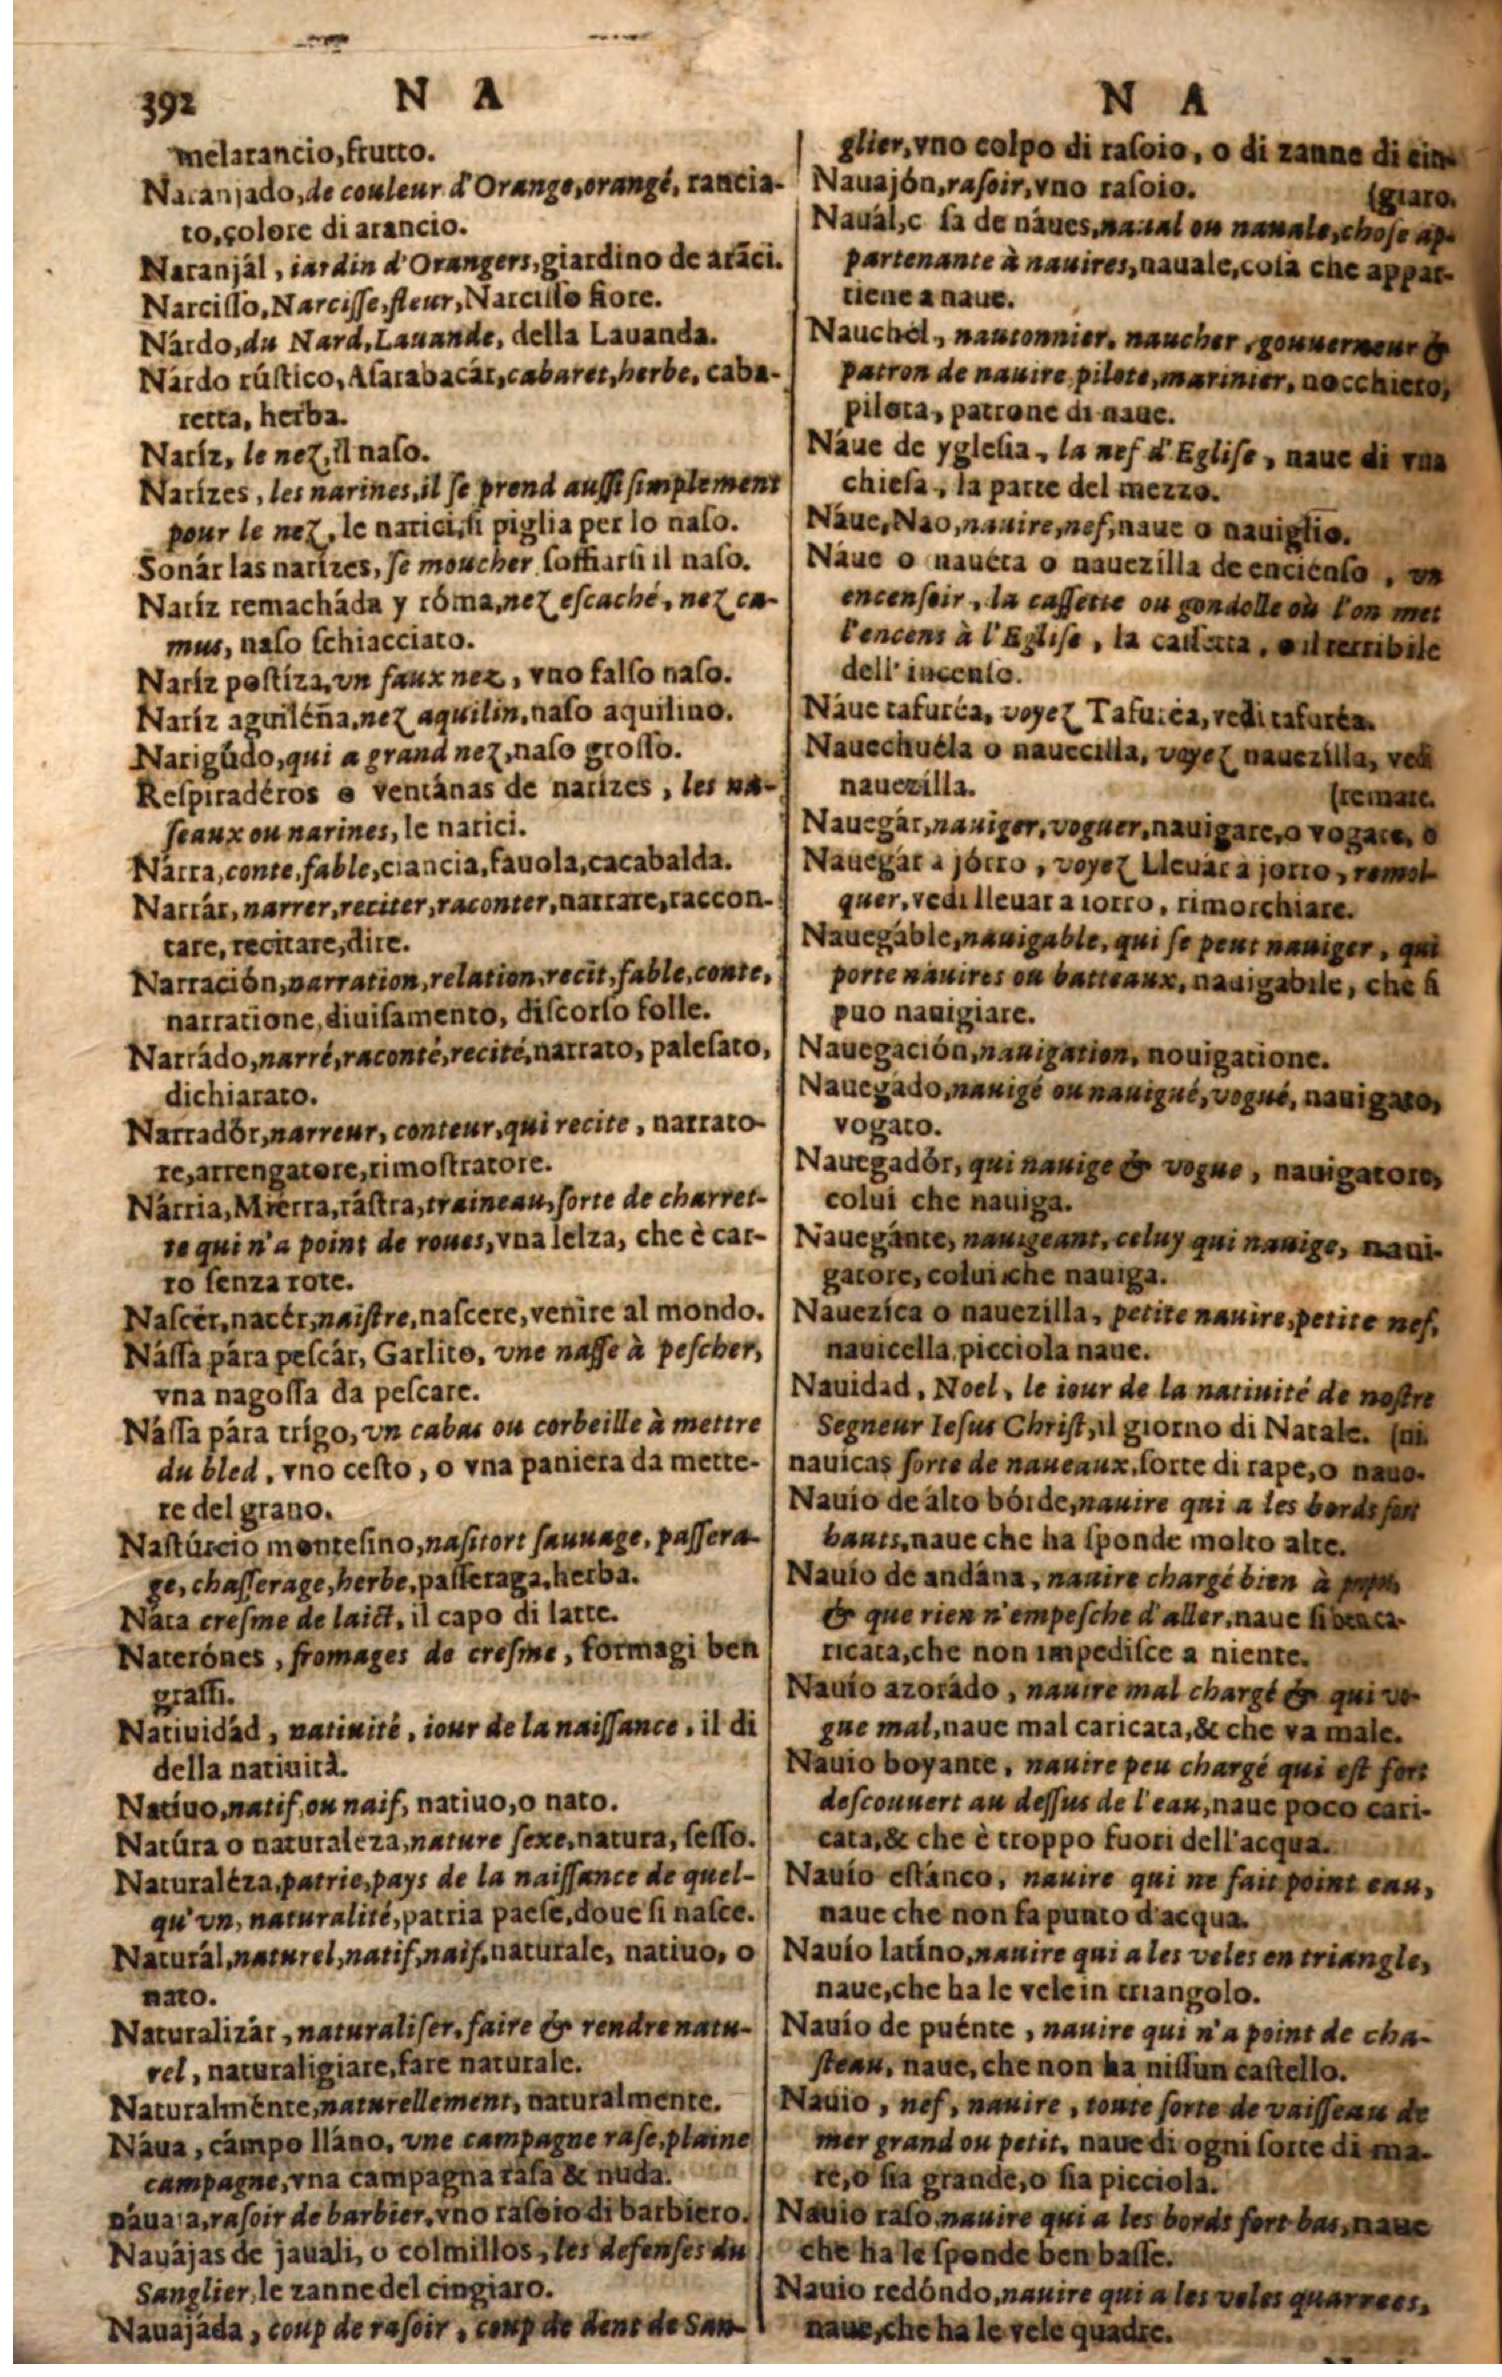 392 N A
melarancio,frutto.
Naranjado,de couleur d'Orange,orangé, rancia-
to,colore di arancio.
Naranjál, iardin d'Orangers,giardino de arāci.
Narcisso,Narcisse,fleur,Narcisso fiore.
Nárdo,du Nard,Lauande, della Lauanda.
Nárdo rústico,Asarabacár,cabaret,herbe, caba-
retta, herba.
Naríz, le nez,il naso.
Narízes, les narines,il se prend aussi simplement
pour le nez, le narici,si piglia per lo naso.
Sonár las narízes, se moucher, soffiarsi il naso.
Naríz remacháda y róma,nez escaché, nez ca-
mus, naso schiacciato.
Naríz postíza,vn faux nez, vno falso naso.
Naríz aguiléña,nez aquilin,naso aquilino.
Narigúdo,qui a grand nez,naso grosso.
Respiradéros o ventánas de narízes, les na-
seaux ou narines, le narici.
Nárra,conte,fable,ciancia,fauola,cacabalda.
Narrár,narrer,reciter,raconter,narrare,raccon-
tare, recitare,dire.
Narración,narration,relation,recit,fable,conte,
narratione,diuisamento, discorso folle.
Narrádo,narré,raconté,recité,narrato, palesato,
dichiarato.
Narradór,narreur, conteur,qui recite, narrato-
re,arrengatore,rimostratore.
Nárria,Mierra,rástra,traineau,sorte de charret-
te qui n'a point de roues,vna lelza, che è car-
ro senza rote.
Nascér,nacér,naistre,nascere,venire al mondo.
Nássa pára pescár, Garlito, vne nasse à pescher,
vna nagossa da pescare.
Nássa pára trígo,vn cabas ou corbeille à mettre
du bled, vno cesto, o vna paniera da mette-
re del grano.
Nastúrcio montesino,nasitort sauuage, passera-
ge, chasserage,herbe,passeraga,herba.
Náta cresme de laict, il capo di latte.
Naterónes, fromages de cresme, formagi ben
grassi.
Natiuidád, natiuité, iour de la naissance, il di
della natiuità.
Natíuo,natif,ou naif, natiuo,o nato.
Natúra o naturaleza,nature sexe,natura, sesso.
Naturaléza,patrie,pays de la naissance de quel-
qu'vn, naturalité,patria paese,doue si nasce.
Naturál,naturel,natif,naif,naturale, natiuo, o
nato.
Naturalizár, naturaliser,faire & rendre natu-
rel, naturaligiare,fare naturale.
Naturalménte,naturellement, naturalmente.
Náua, cámpo lláno, vne campagne rase,plaine
campagne,vna campagna rasa & nuda.
náuaia,rasoir de barbier,vno rasoio di barbiero.
Nauájas de jauali, o colmillos, les defenses du
Sanglier,le zanne del cingiaro.
Nauajáda, coup de rasoir, coup de dent de San-
N A
glier,vno colpo di rasoio, o di zanne di cin-
Nauajón,rasoir,vno rasoio. (giaro.
Nauál,c sa de náues,naual ou nauale,chose ap-
partenante à nauires,nauale,cosa che appar-
tiene a naue.
Nauchél, nautonnier, naucher, gouuerneur &
patron de nauire pilote,marinier, nocchiero,
pilota, patrone di naue.
Náue de yglesia, la nef d'Eglise, naue di vna
chiesa, la parte del mezzo.
Náue,Nao,nauire,nef,naue o nauiglio.
Náue o nauéta o nauezílla de enciénso, vn
encensoir, la cassette ou gondolle où l'on met
l'encens à l'Eglise, la cassetta, o il terribile
dell' incenso.
Náue tafuréa, voyez Tafuréa,vedi tafuréa.
Nauechuéla o nauecilla, voyez nauezílla, vedi
nauezílla. (remare.
Nauegár,nauiger,voguer,nauigare,o vogare, o
Nauegár a jórro, voyez Lleuár a jorro, remol-
quer,vedi lleuar a iorro, rimorchiare.
Nauegáble,nauigable, qui se peut nauiger, qui
porte nauires ou batteaux, nauigabile, che si
puo nauigiare.
Nauegación,nauigation, nouigatione.
Nauegádo,nauigé ou nauigué,vogué, nauigato,
vogato.
Nauegadór, qui nauige & vogue, nauigatore,
colui che nauiga.
Nauegánte, nauigeant, celuy qui nauige, naui-
gatore, colui che nauiga.
Nauezíca o nauezilla, petite nauire,petite nef,
nauicella picciola naue.
Nauidad, Noel, le iour de la natiuité de nostre
Segneur Iesus Christ,il giorno di Natale. (ni.
nauicas sorte de naueaux,sorte di rape,o nauo-
Nauío de álto bórde,nauire qui a les bords fort
hauts,naue che ha sponde molto alte.
Nauío de andána, nauire chargé bien à
& que rien n'empesche d'aller,naue si ben ca-
ricata,che non impedisce a niente.
Nauío azorádo, nauire mal chargé & qui vo-
gue mal,naue mal caricata,& che va male.
Nauio boyante, nauire peu chargé qui est fort
descouuert au dessus de l'eau,naue poco cari-
cata,& che è troppo fuori dell'acqua.
Nauío estánco, nauire qui ne fait point eau,
naue che non fa punto d'acqua.
Nauío latíno,nauire qui a les veles en triangle,
naue,che ha le vele in triangolo.
Nauío de puénte, nauire qui n'a point de cha-
steau, naue, che non ha nissun castello.
Nauio, nef, nauire, toute sorte de vaisseau de
mer grand ou petit, naue di ogni sorte di ma-
re,o sia grande,o sia picciola.
Nauio raso,nauire qui a les bords fort bas,naue
che ha le sponde ben basse.
Nauio redóndo,nauire qui a les veles quarrees,
naue,che ha le vele quadre.